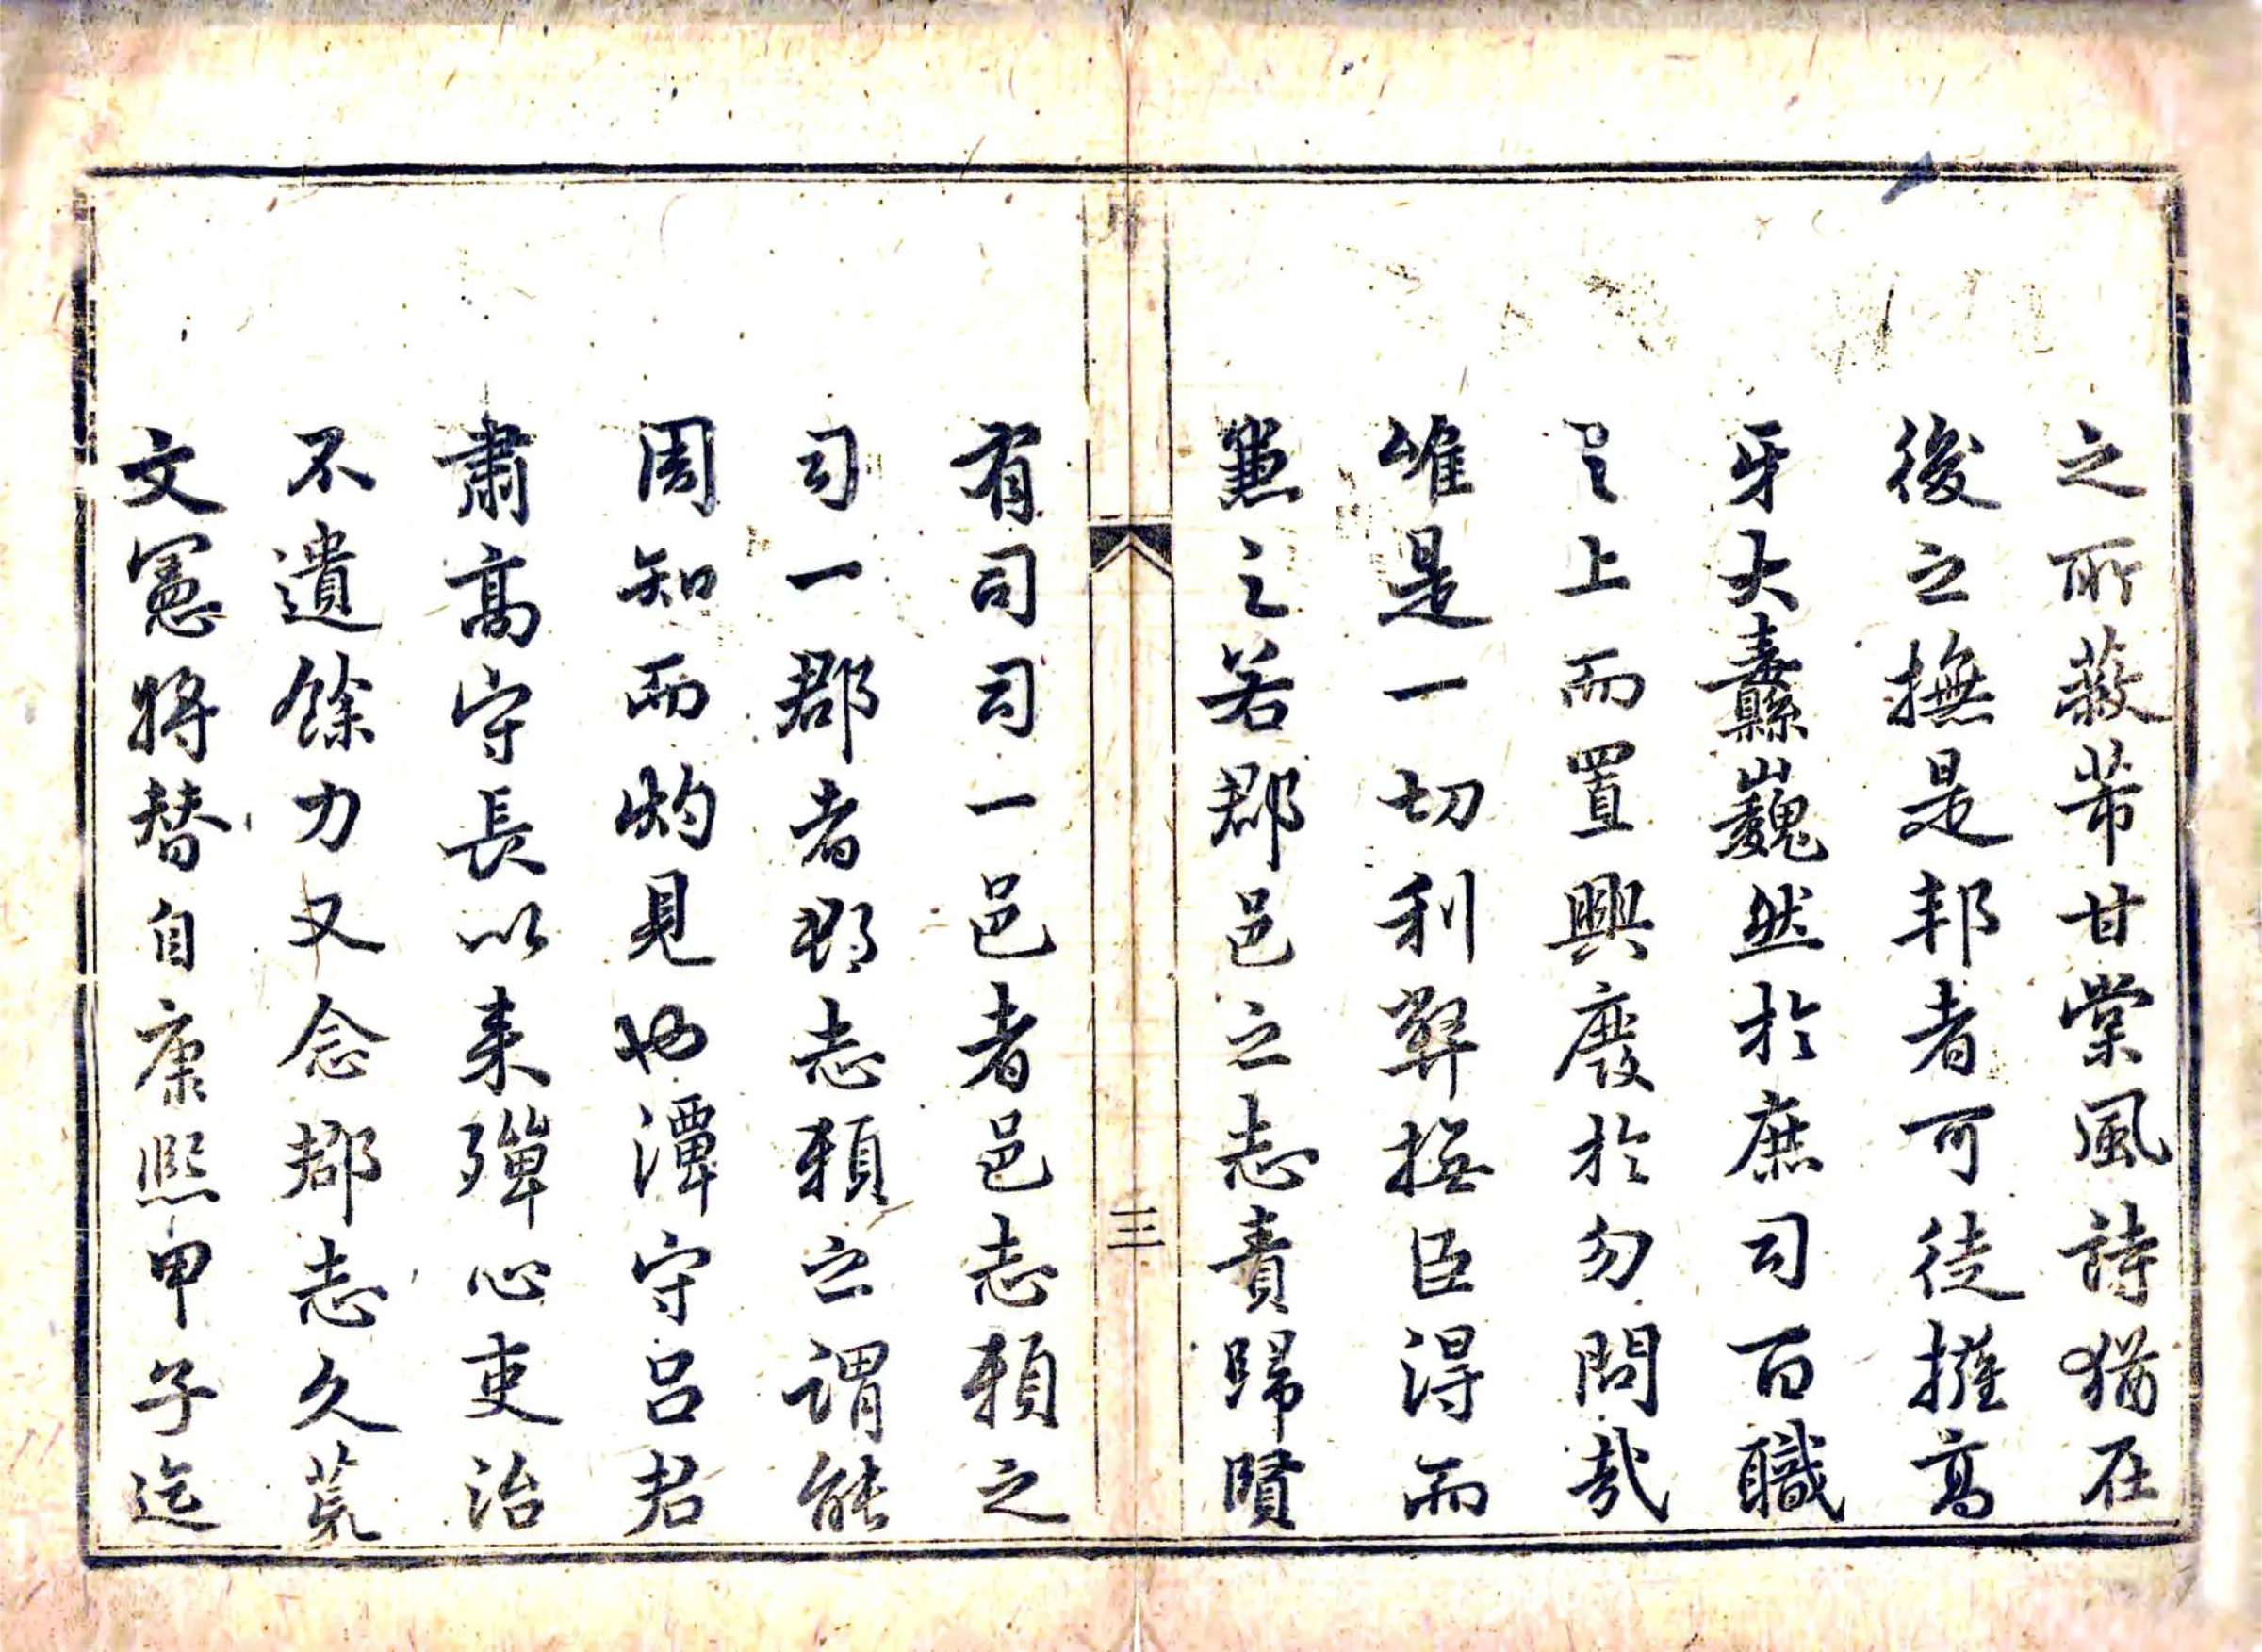 之所蔽芾甘棠風詩猶在
後之撫是邦者可徒擁高
牙大纛巍然於庶司百職
之上而置興廢於勿問哉
雖是一切利弊撫臣得而
兼之若郡邑之志責歸賢
序
三
有司司一邑者邑志賴之
司一郡者郡志賴之謂能
周知而灼見也潭守呂君
肅高守長以来殫心吏治
不遺餘力又念郡志久荒
文憲將替自康熙甲子迄